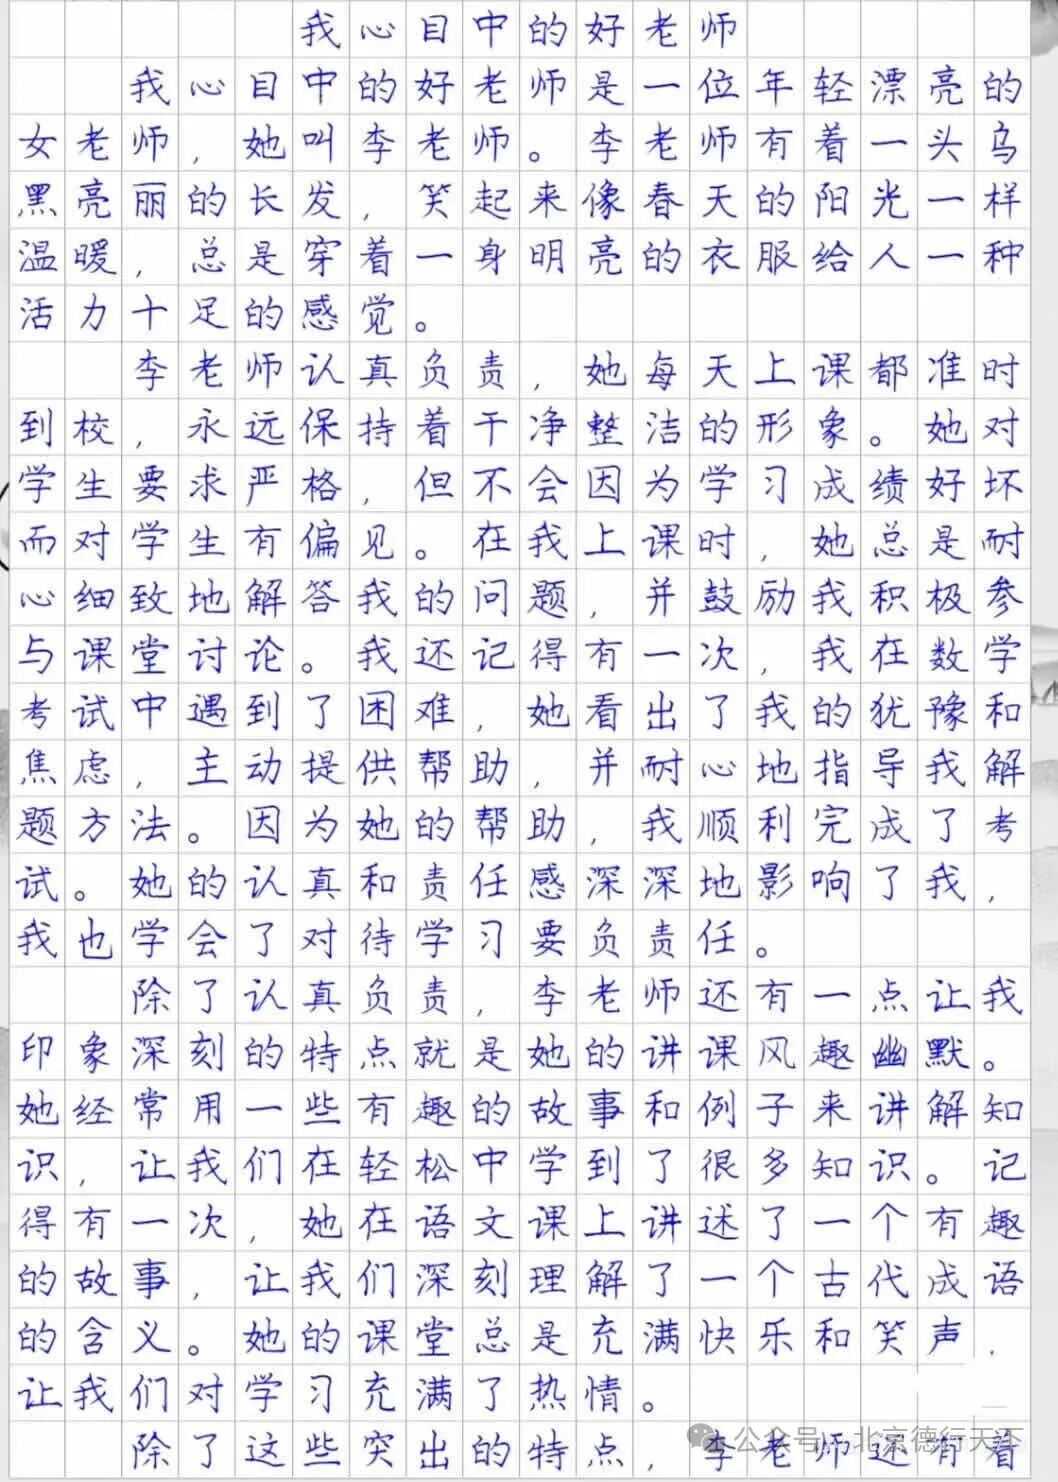 我心目中的好老师
我心目中的好老师是一位年轻漂亮的
女老师，她叫李老师。李老师有着一头乌
黑亮丽的长发，笑起来像春天的阳光一样
温暖，总是穿着一身明亮的衣服给人一种
活力十足的感觉。
李老师认真负责，她每天上课都准时
到校，永远保持着干净整洁的形象。她对
学生要求严格，但不会因为学习成绩好坏
而对学生有偏见。在我上课时，她总是耐
心细致地解答我的问题，并鼓励我积极参
与课堂讨论。我还记得有一次，我在数学
考试中遇到了困难，她看出了我的犹豫和
焦虑，主动提供帮助，并耐心地指导我解
题方法。因为她的帮助，我顺利完成了考
试。她的认真和责任感深深地影响了我，
我也学会了对待学习要负责任。
除了认真负责，李老师还有一点让我
印象深刻的特点就是她的讲课风趣幽默。
她经常用一些有趣的故事和例子来讲解知
识，让我们在轻松中学到了很多知识。记
得有一次，她在语文课上讲述了一个有趣
的故事，让我们深刻理解了一个古代成语
的含义。她的课堂总是充满快乐和笑声，
让我们对学习充满了热情。
除了这些突出的特点，李老师还有着
公众号·北京德行天下